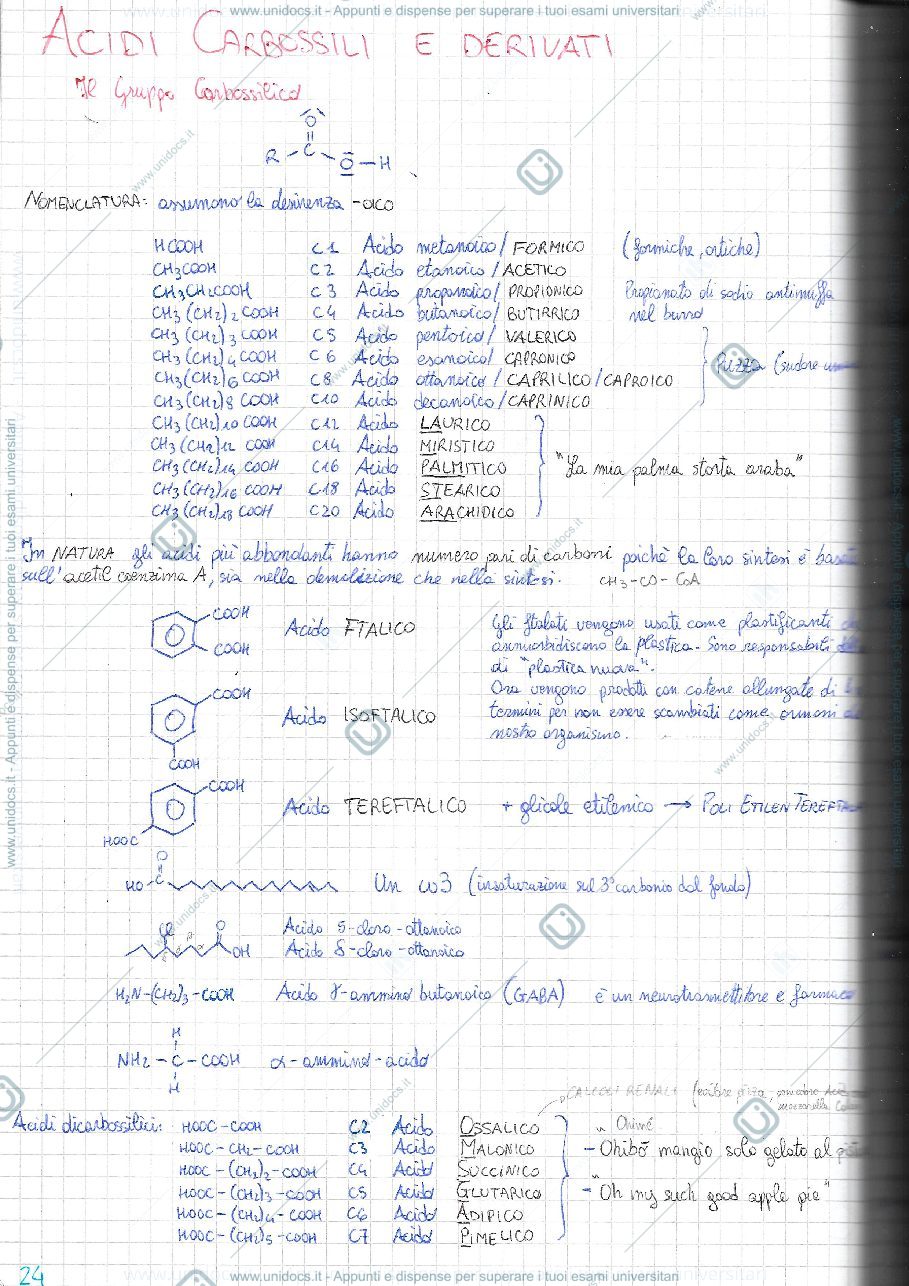 www.unidocs.it - Appunti e dispense per superare i tuoi esami universitari
ACIDI CARBOSSILI E DERIVATI
Il Gruppo Carbossilico
O
R - C
O - H
NOMENCLATURA: assumono la desinenza -OICO
HCOOH C1 Acido metanoico/FORMICO (formiche, ortiche)
CH3COOH C2 Acido etanoico/ACETICO
CH3CH2COOH C3 Acido propanoico/PROPIONICO Propianato di sodio antimuffa
CH3(CH2)2COOH C4 Acido butanoico/BUTIRRICO nel burro
CH3(CH2)3COOH C5 Acido pentoico/VALERICO
CH3(CH2)4COOH C6 Acido esanoico/CAPRONICO Puzza (sudore
CH3(CH2)6COOH C8 Acido ottanoico/CAPRILICO/CAPROICO
CH3(CH2)8COOH C10 Acido decanoico/CAPRINICO
CH3(CH2)10COOH C12 Acido LAURICO
CH3(CH2)12COOH C14 Acido MIRISTICO
CH3(CH2)14COOH C16 Acido PALMITICO "La mia palma storta araba"
CH3(CH2)16COOH C18 Acido STEARICO
CH3(CH2)18COOH C20 Acido ARACHIDICO
In NATURA gli acidi più abbondanti hanno numero pari di carboni poichè la loro sintesi è
sull'acetil coenzima A, sia nella demolizione che nella sintesi. CH3-CO-CoA
COOH
COOH
Acido FTALICO
Gli ftalati vengono usati come plastificanti
ammorbidiscono la plastica. Sono responsabili
di "plastica nuova".
Ora vengono prodotti con catene allungate di
termini per non essere scambiati come ormoni
nostro organismo.
COOH
Acido ISOFTALICO
COOH
COOH
Acido TEREFTALICO + glicole etilenico → POLI ETILEN
HOOC
O
HO-C Un ω3 (insaturazione sul 3° carbonio dal fondo)
Cl O
OH
Acido 5-cloro-ottanoico
Acido δ-cloro-ottanoico
H2N-(CH2)3-COOH Acido γ-ammino butanoico (GABA) è un neurotrasmettitore e
H
NH2-C-COOH α-ammino-acido
H
CALCOLI RENALI
Acidi dicarbossilici: HOOC-COOH C2 Acido OSSALICO "Ohimé
HOOC-CH2-COOH C3 Acido MALONICO - Ohibò mangio solo gelato al
HOOC-(CH2)2-COOH C4 Acido SUCCINICO
HOOC-(CH2)3-COOH C5 Acido GLUTARICO - "Oh my such good apple pie"
HOOC-(CH2)4-COOH C6 Acido ADIPICO
HOOC-(CH2)5-COOH C7 Acido PIMELICO
24
www.unidocs.it - Appunti e dispense per superare i tuoi esami universitari